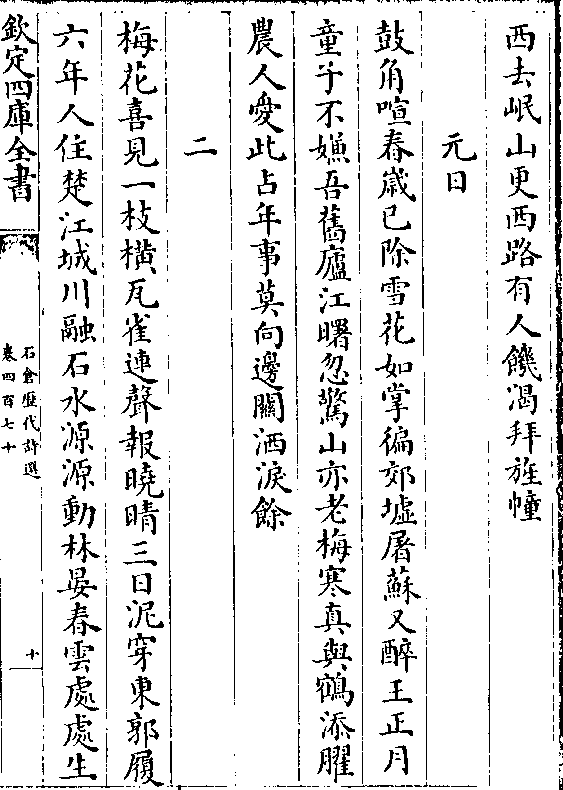 西去岷山更西路有人饑渴拜旌幢
元日
鼓角喧春歲已除雪花如掌徧郊墟屠蘇又醉王正月
童子不嫌吾舊廬江曙忽驚山亦老梅寒真與鶴添臞
農人愛此占年事莫向邊關洒淚餘
二
梅花喜見一枝横瓦雀連聲報曉晴三日泥穿東郭履
六年人住楚江城川融石水源源動林晏春雲處處生
欽定四庫全書
石倉歷代詩選
卷四百七十
十